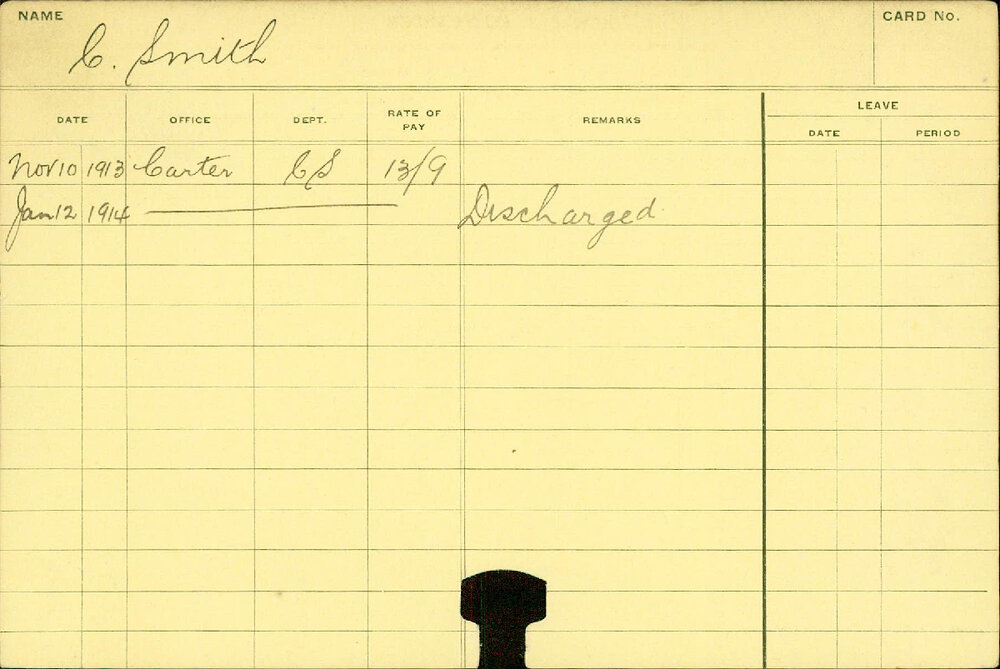 NAME
C. Smith
CARD No.
DATE OFFICE DEPT. RATE OF PAY REMARKS LEAVE
DATE PERIOD
Nov 10 1913 Carter CS 13/9
Jan 12 1914 Discharged